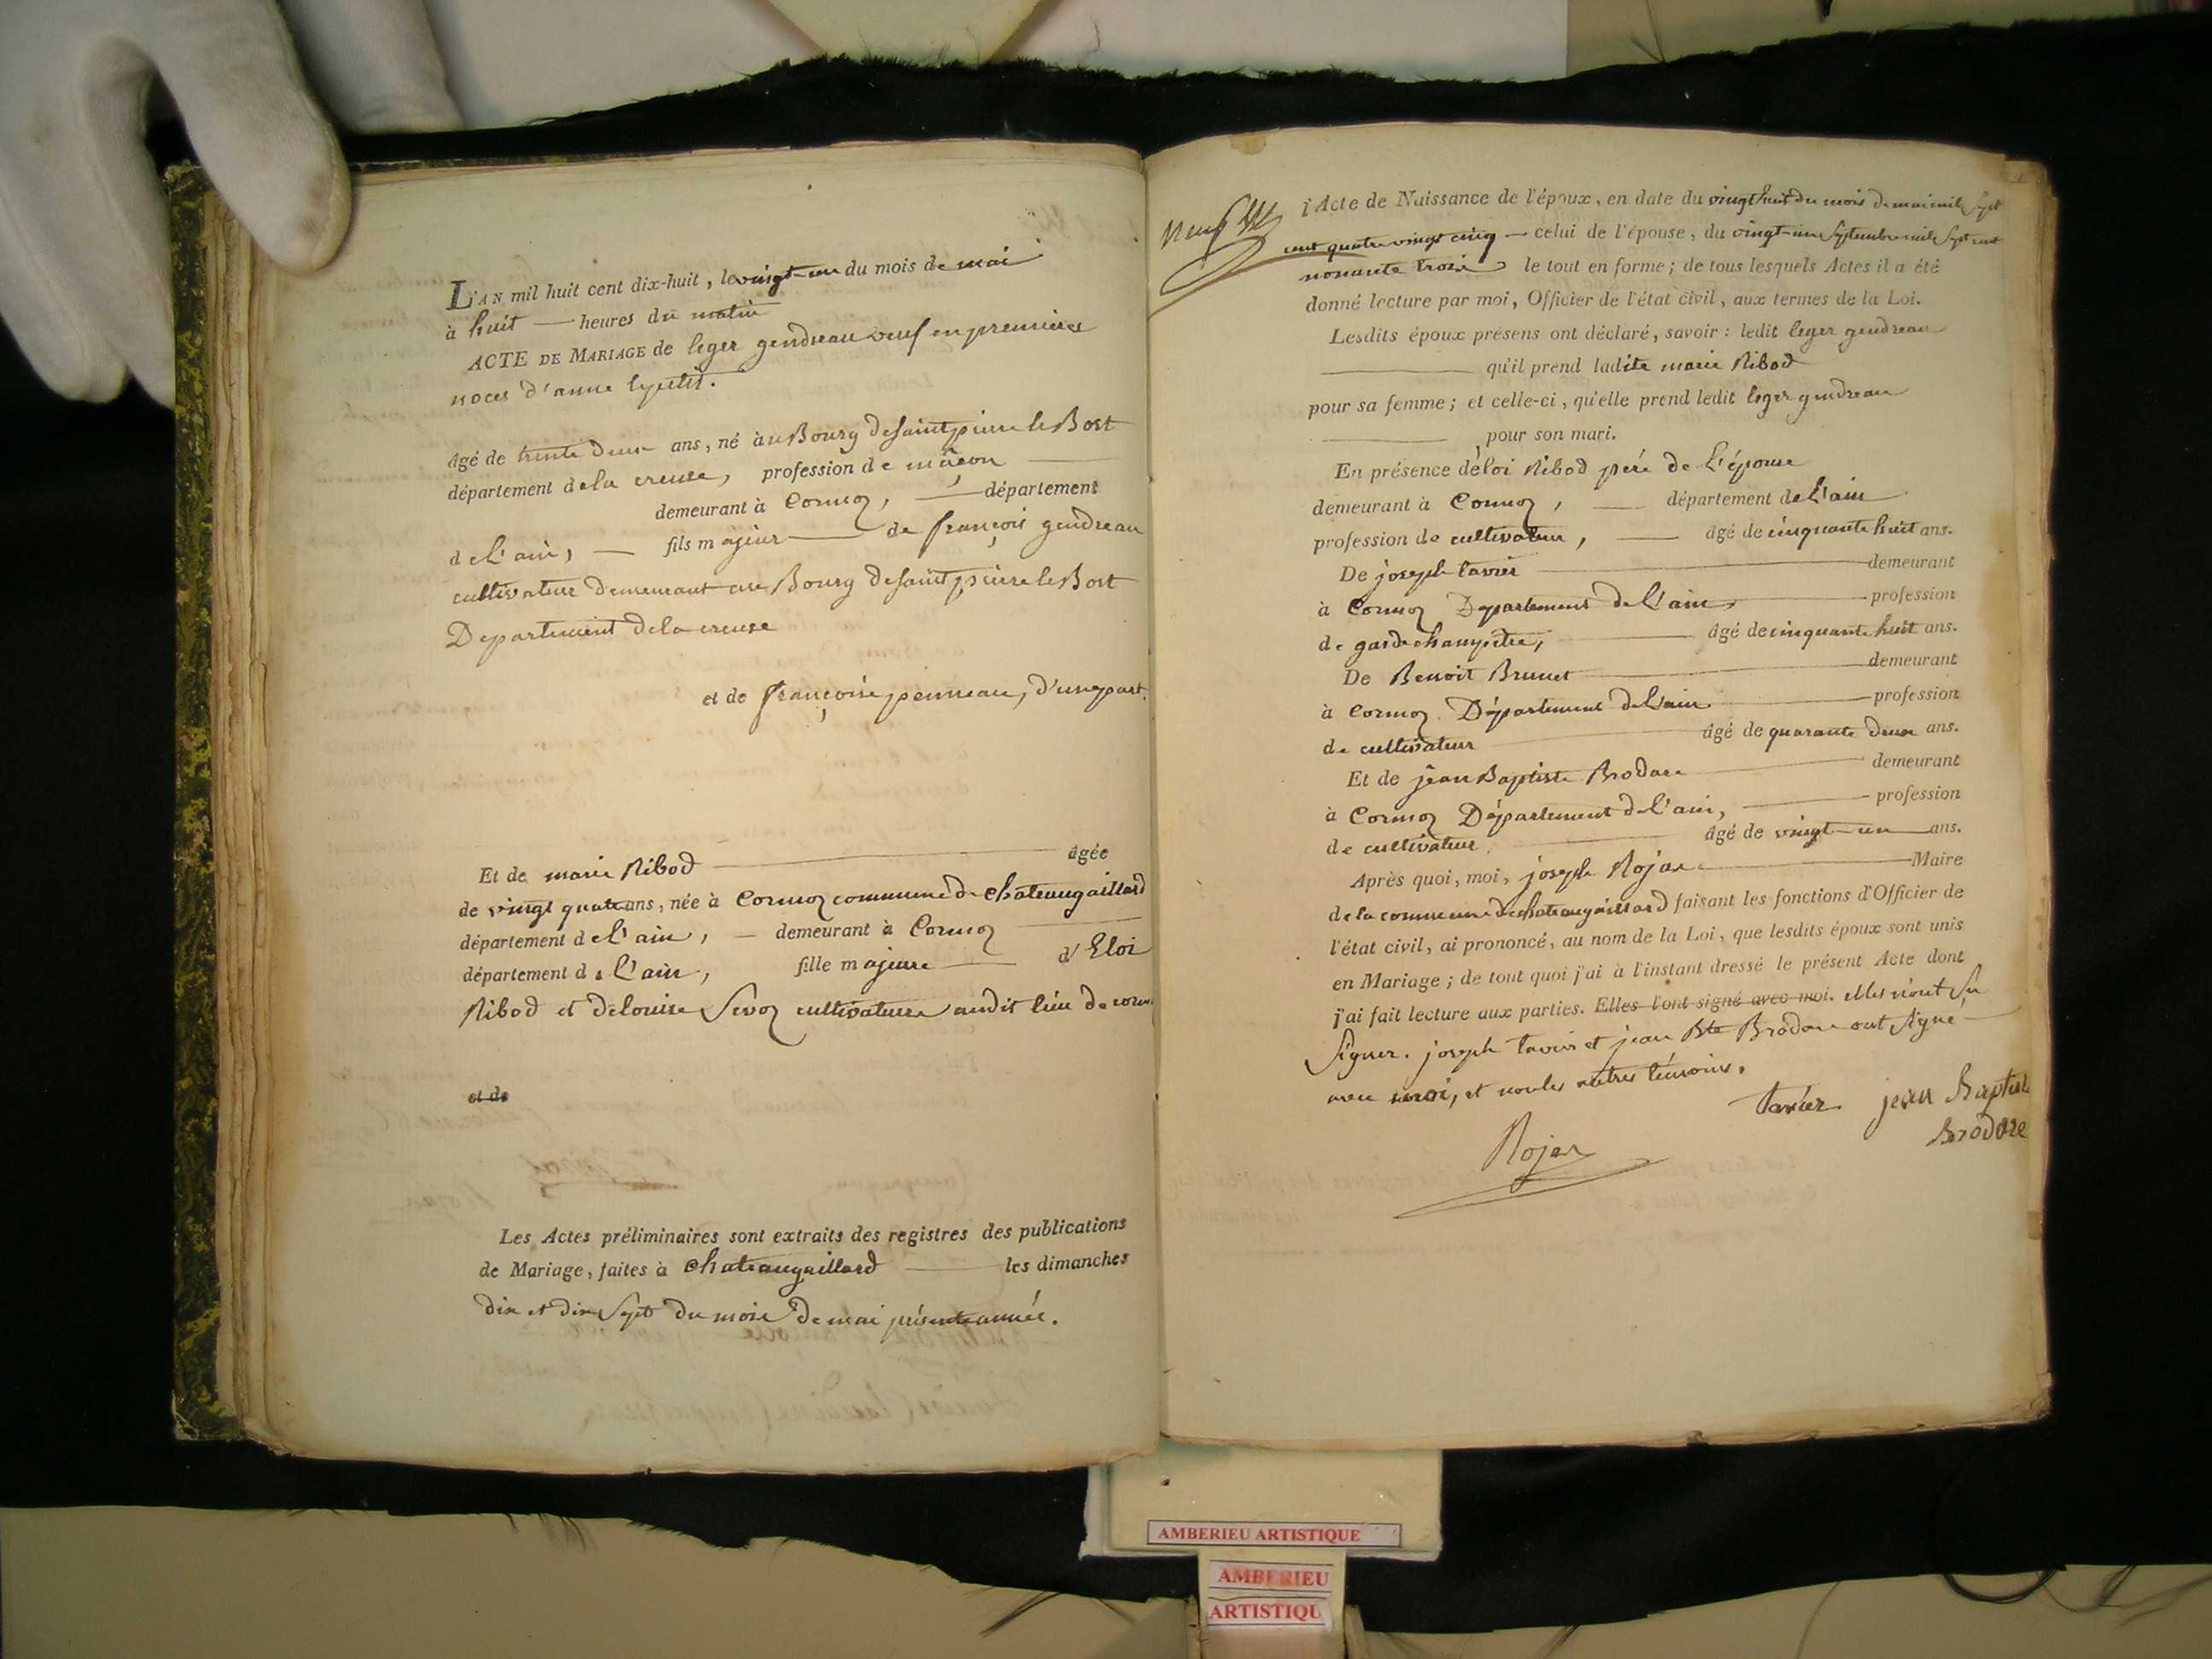 L'AN mil huit cent dix-huit, le vingt-un du mois de mai
à huit — heures du matin
ACTE DE MARIAGE de leger gendreau veuf en premieres
noces d'anne
âgé de trente deux ans, né au Bourg de saint pierre le Bost
département de la creuse, profession de mâçon
demeurant à Cormoz, — département
de l'ain, — fils majeur — de françois gendreau
cultivateur demeurant au Bourg de saint pierre le Bost
Departement de la creuse
et de françoise penneau, d'une part.
Et de marie Ribod — âgée
de vingt quatre ans, née à Cormoz commune de chateaugaillard
département de l'ain, — demeurant à Cormoz
département de l'ain, fille majeure — d'Eloi
Ribod et de louise Sevoz cultivateurs audit lieu de corm
et de
Les Actes préliminaires sont extraits des registres des publications
de Mariage, faites à chateaugaillard — les dimanches
dix et dix Sept du mois de mai présente année.
l'Acte de Naissance de l'époux, en date du vingt huit du mois de mai mil Sept
cent quatre vingt cinq — celui de l'épouse, du vingt-un Septembre mil Sept cent
nonante trois le tout en forme; de tous lesquels Actes il a été
donné lecture par moi, Officier de l'état civil, aux termes de la Loi.
Lesdits époux présens ont déclaré, savoir: ledit leger gendreau
qu'il prend ladite marie Ribod
pour sa femme; et celle-ci, qu'elle prend ledit leger gendreau
pour son mari.
En présence d'éloi Ribod pére de l'épouse
demeurant à Cormoz, — département de l'ain
profession de cultivateur, — âgé de cinquante huit ans.
De joseph tavier — demeurant
à Cormoz Departement de l'ain, — profession
de garde champêtre, — âgé de cinquante huit ans.
De Benoit Brunet — demeurant
à Cormoz Département de l'ain — profession
de cultivateur — âgé de quarante deux ans.
Et de jean Baptiste Brodare — demeurant
à Cormoz Département de l'ain, — profession
de cultivateur — âgé de vingt-un ans.
Après quoi, moi, joseph Rojar — Maire
de la commune de chateaugaillard faisant les fonctions d'Officier de
l'état civil, ai prononcé, au nom de la Loi, que lesdits époux sont unis
en Mariage; de tout quoi j'ai à l'instant dressé le présent Acte dont
j'ai fait lecture aux parties. Elles l'ont signé avec moi. elles n'ont Su
Signer. joseph tavier et jean Bte Brodare ont Signé
avec moi, et non les autres témoins.
tavier jean Baptiste
Brodare
Rojar
AMBERIEU ARTISTIQUE
AMBERIEU
ARTISTIQU